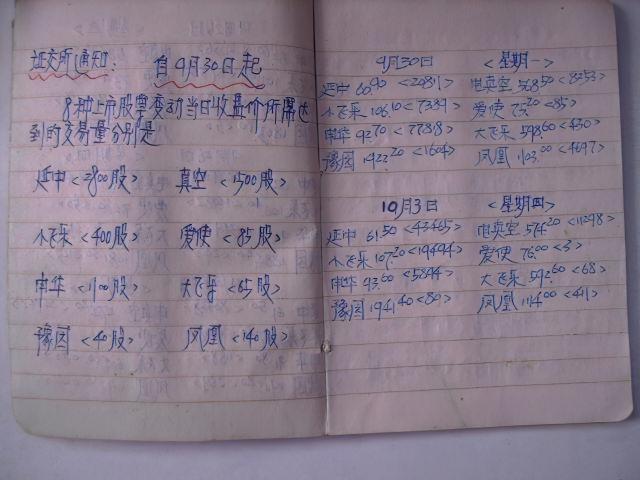 证交所通知: 自9月30日起
8种上市股票变动当日收盘价所需达
到的交易量分别是
延中<2800股> 真空<1500股>
小飞乐<400股> 爱使<85股>
申华<1100股> 大飞乐<65股>
豫园<40股> 凤凰<140股>
9月30日 <星期一>
延中 60.90 <20811> 电真空 568.50 <8353>
小飞乐 106.10 <7381> 爱使 75.20 <85>
申华 92.70 <77818> 大飞乐 598.60 <430>
豫园 1922.20 <1604> 凤凰 1103.00 <4697>
10月3日 <星期四>
延中 61.50 <43465> 电真空 574.20 <11298>
小飞乐 107.20 <19494> 爱使 76.00 <3>
申华 93.60 <5894> 大飞乐 592.60 <68>
豫园 1941.40 <80> 凤凰 1114.00 <411>